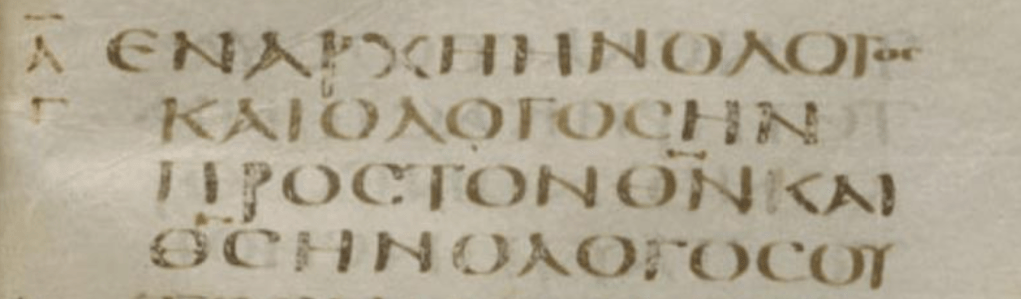 Α̅ ΕΝΑΡΧΗΗΝΟΛΟΓΟϹ
Γ ΚΑΙΟΛΟΓΟϹΗΝ
ΠΡΟϹΤΟΝΘ̅Ν̅ΚΑΙ
Θ̅Ϲ̅ΗΝΟΛΟΓΟϹΟΥ